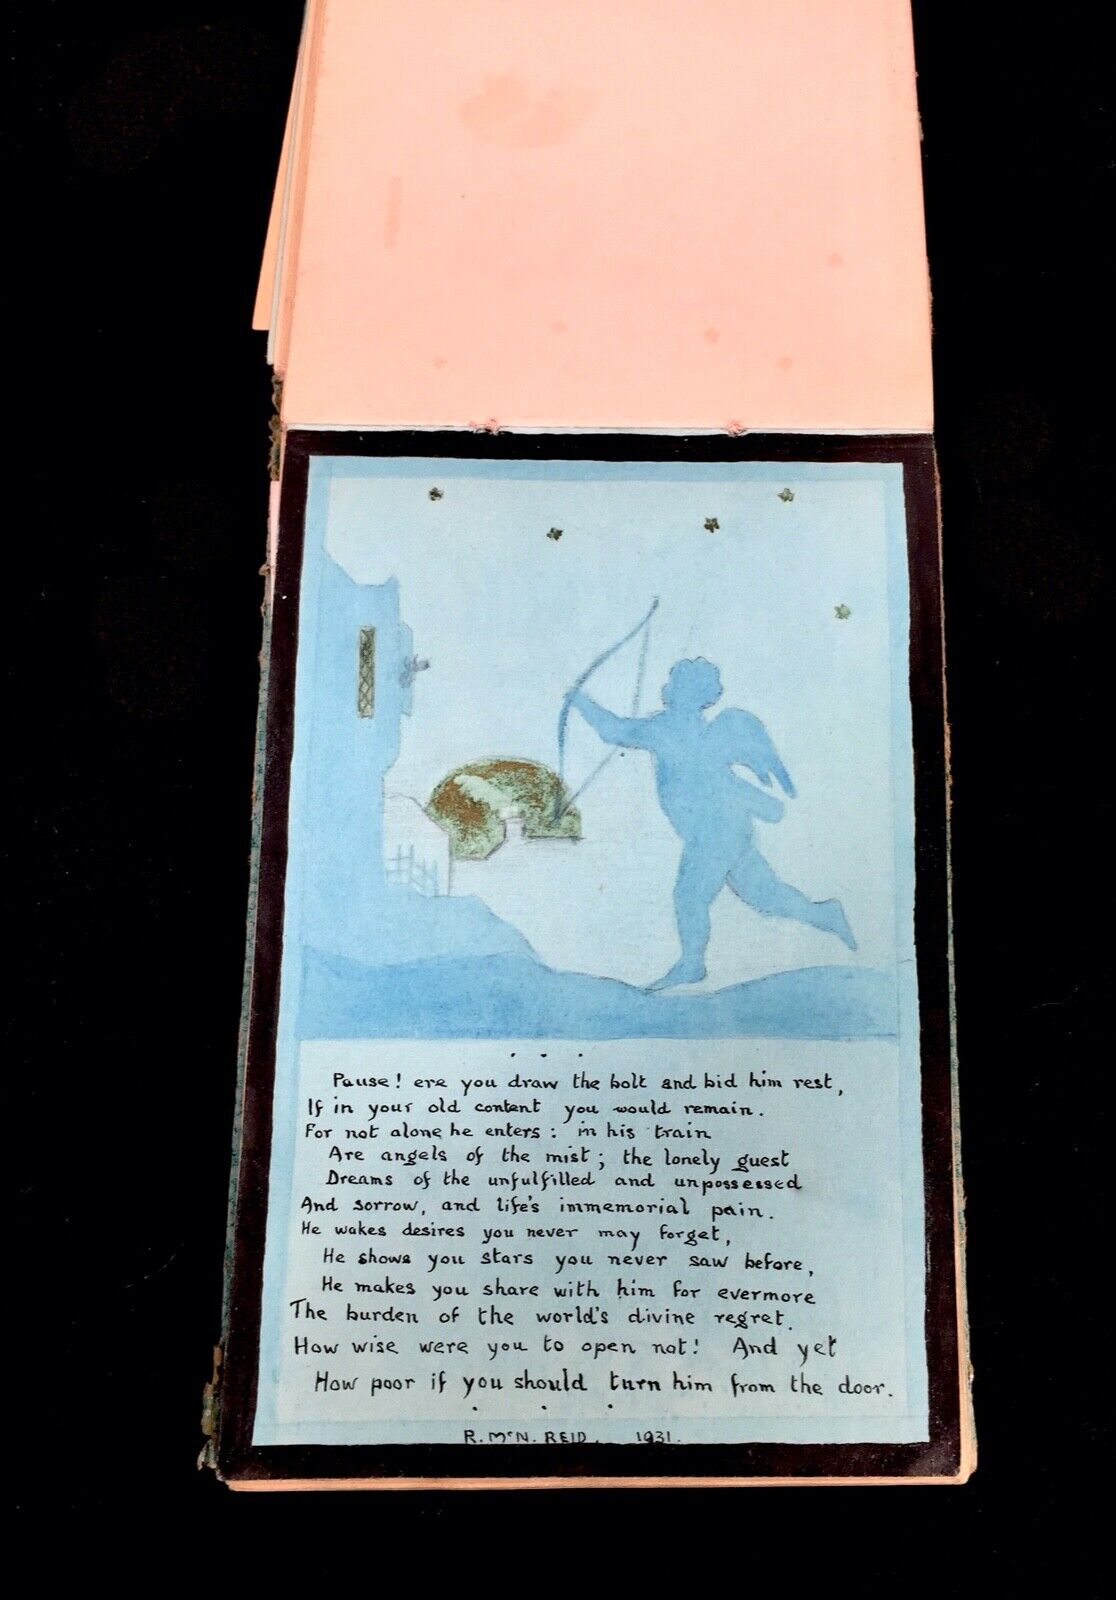 Pause! ere you draw the bolt and bid him rest,
If in your old content you would remain.
For not alone he enters: in his train
Are angels of the mist; the lonely guest
Dreams of the unfulfilled and unpossessed
And sorrow, and life's immemorial pain.
He wakes desires you never may forget,
He shows you stars you never saw before,
He makes you share with him for evermore
The burden of the world's divine regret.
How wise were you to open not! And yet
How poor if you should turn him from the door.
R. McN. REID. 1931.